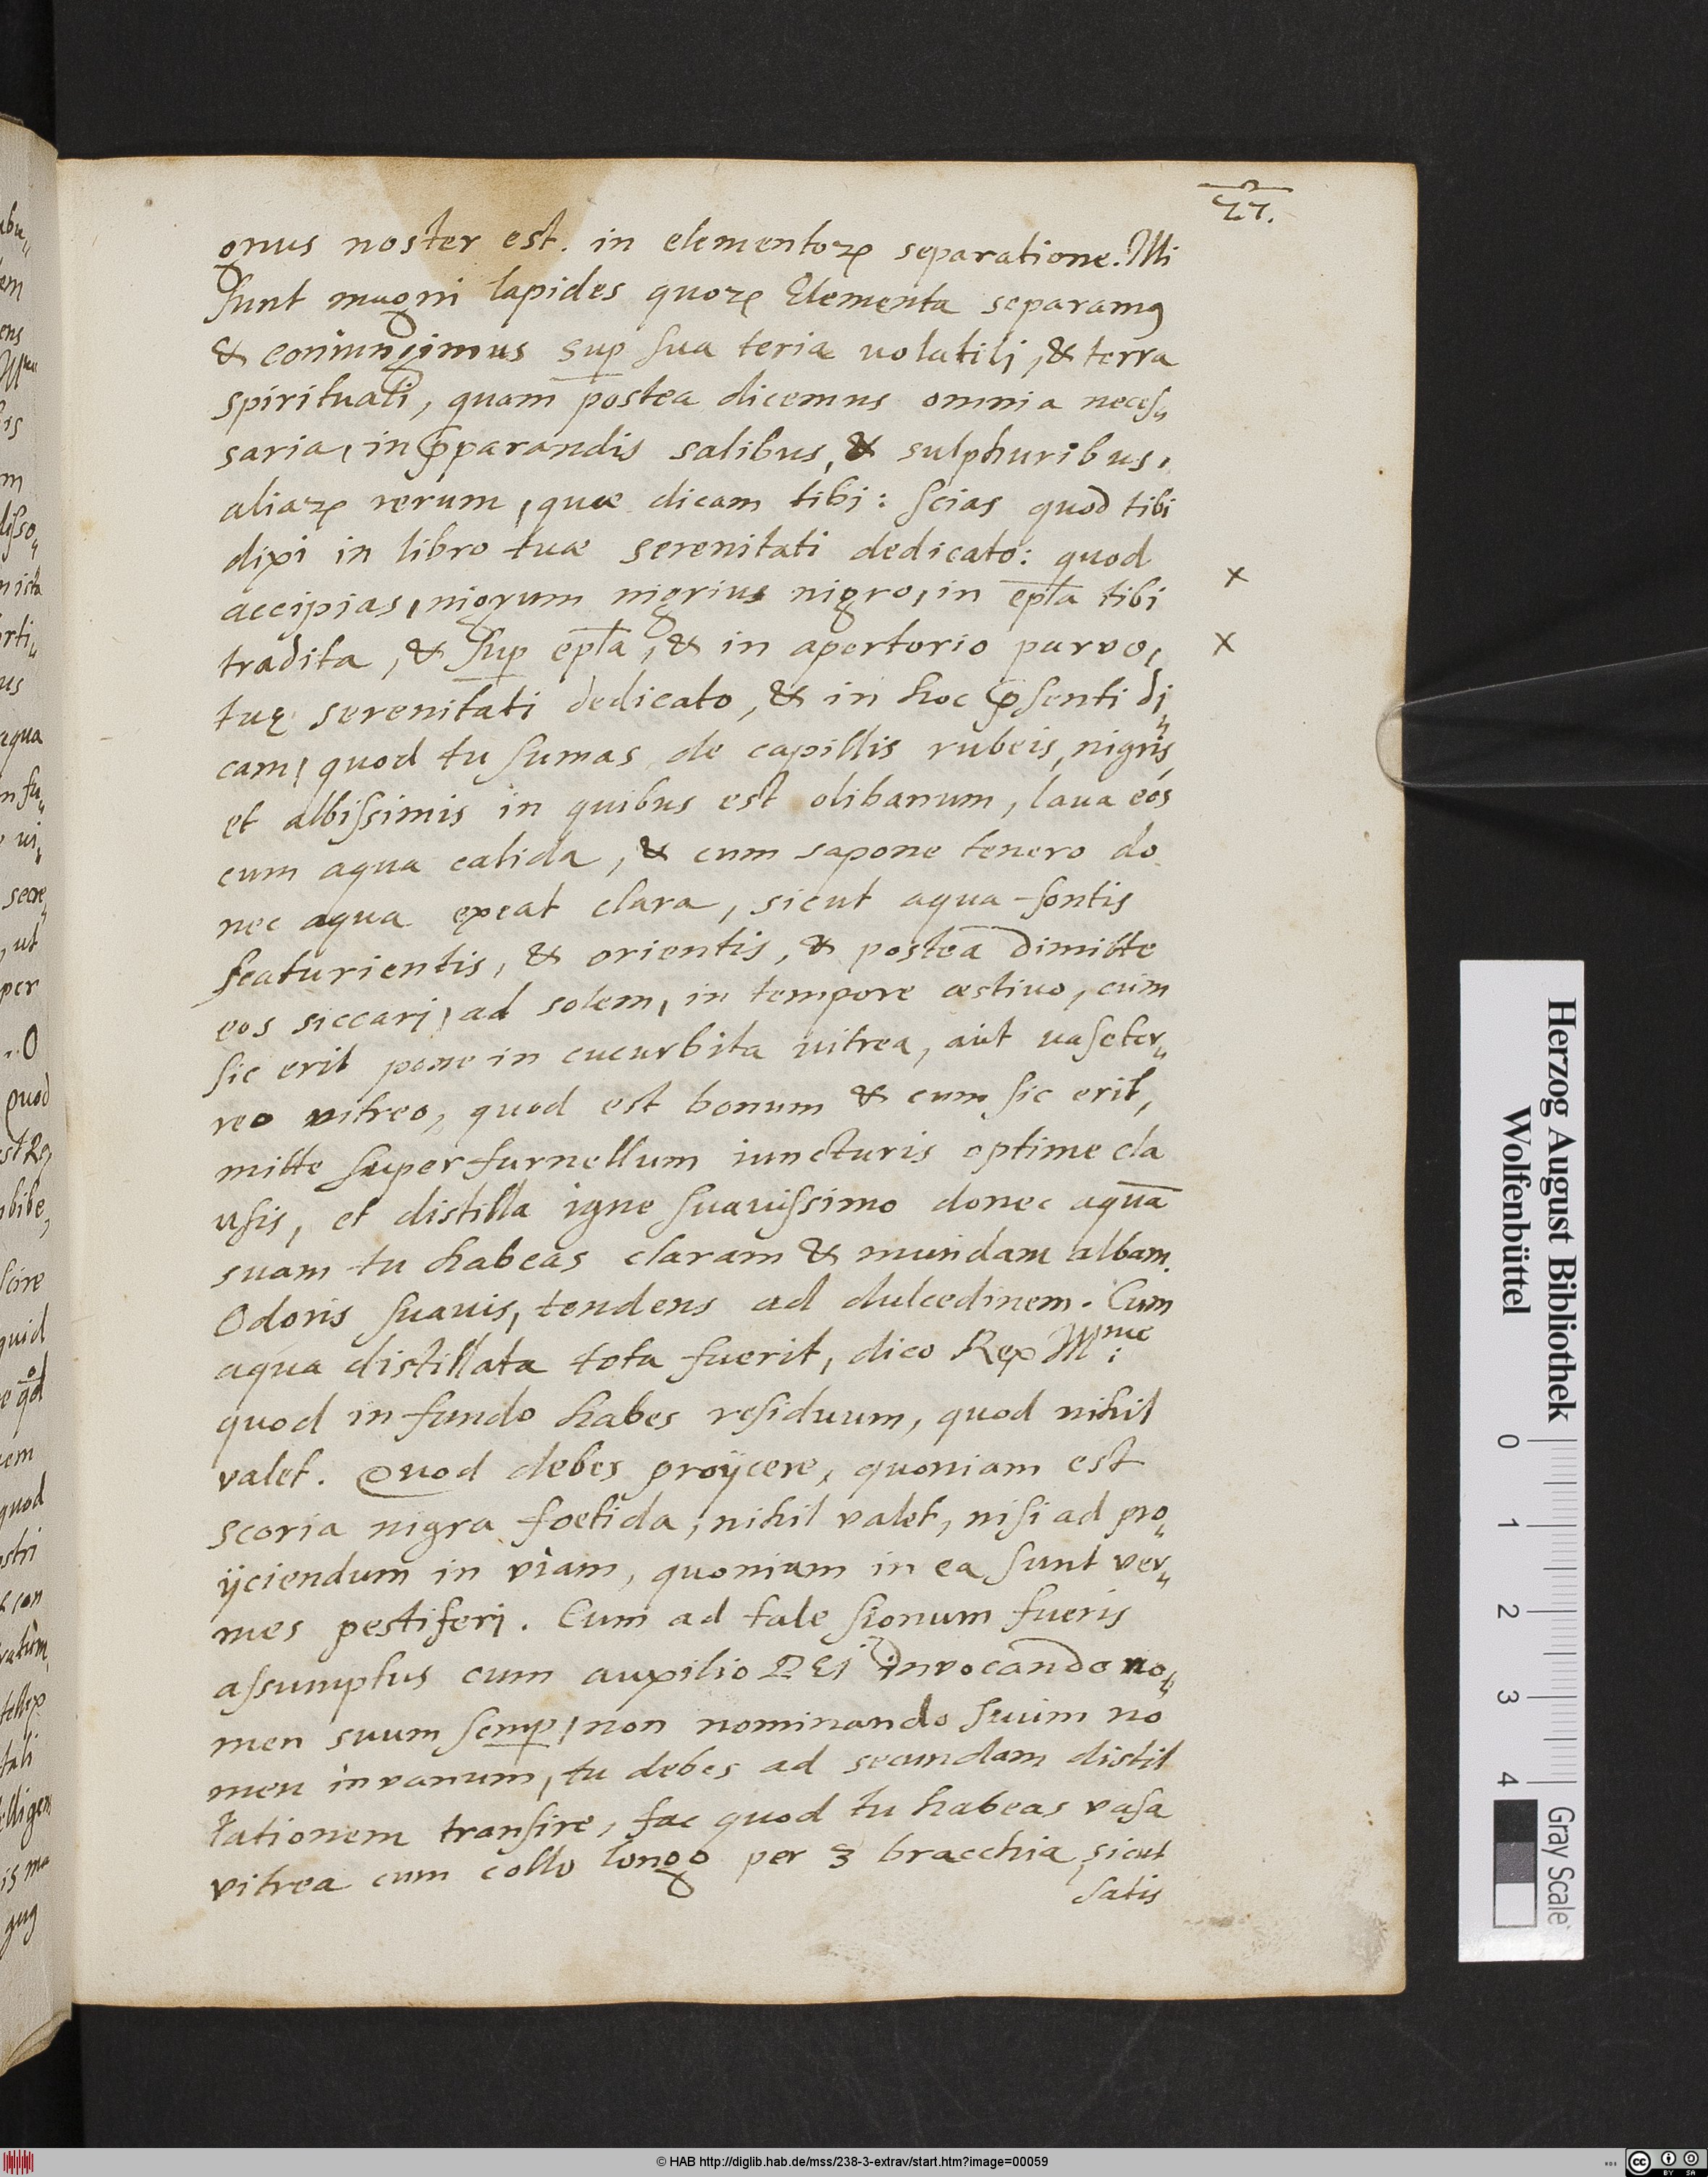 27.
gnus noster est. in elementoꝝ separatione. Illi
sunt magni lapides quoꝝ Elementa separamꝰ
& coniungimus sup sua teria uolatili, & terra
spirituali, quam postea dicemus omnia neces„
saria, in pparandis salibus, & sulphuribus,
aliaꝝ rerum, quæ dicam tibi: scias quod tibi
dixi in libro tuæ serenitati dedicato: quod
accipias, nigrum nigrius nigro, in epla tibi
x
tradita, & sup epla, & in apertorio parvo,
x
tuę serenitati dedicato, & in hoc psenti di„
cam, quod tu sumas de capillis rubeis, nigris,
et albissimis in quibus est olibanum, laua eos
cum aqua calida, & cum sapone tenero do
nec aqua exeat clara, sicut aqua fontis
scaturientis, & orientis, & postea dimitte
eos siccari, ad solem, in tempore æstiuo, cum
sic erit pone in cucurbita uitrea, aut uase ter„
reo vitreo, quod est bonum & cum sic erit,
mitte super furnellum iuncturis optime cla
usis, et distilla igne suauissimo donec aquā
suam tu habeas claram & mundam albam.
Odoris suauis, tendens ad dulcedinem. Cum
aqua distillata tota fuerit, dico Rex Mme:
quod in fundo habes residuum, quod nihil
valet. Quod debes proijcere, quoniam est
scoria nigra foetida, nihil valet, nisi ad pro„
ijciendum in viam, quoniam in ea sunt ver„
mes pestiferj. Cum ad tale signum fueris
assumptus cum auxilio DEI invocando no„
men suum semp, non nominando suum no
men in vanum, tu debes ad secundam distil
lationem transire, fac quod tu habeas vasa
vitrea cum collo longo per 3 bracchia sicut
satis
Herzog August Bibliothek
Wolfenbüttel
0 1 2 3 4
Gray Scale
© HAB http://diglib.hab.de/mss/238-3-extrav/start.htm?image=00059